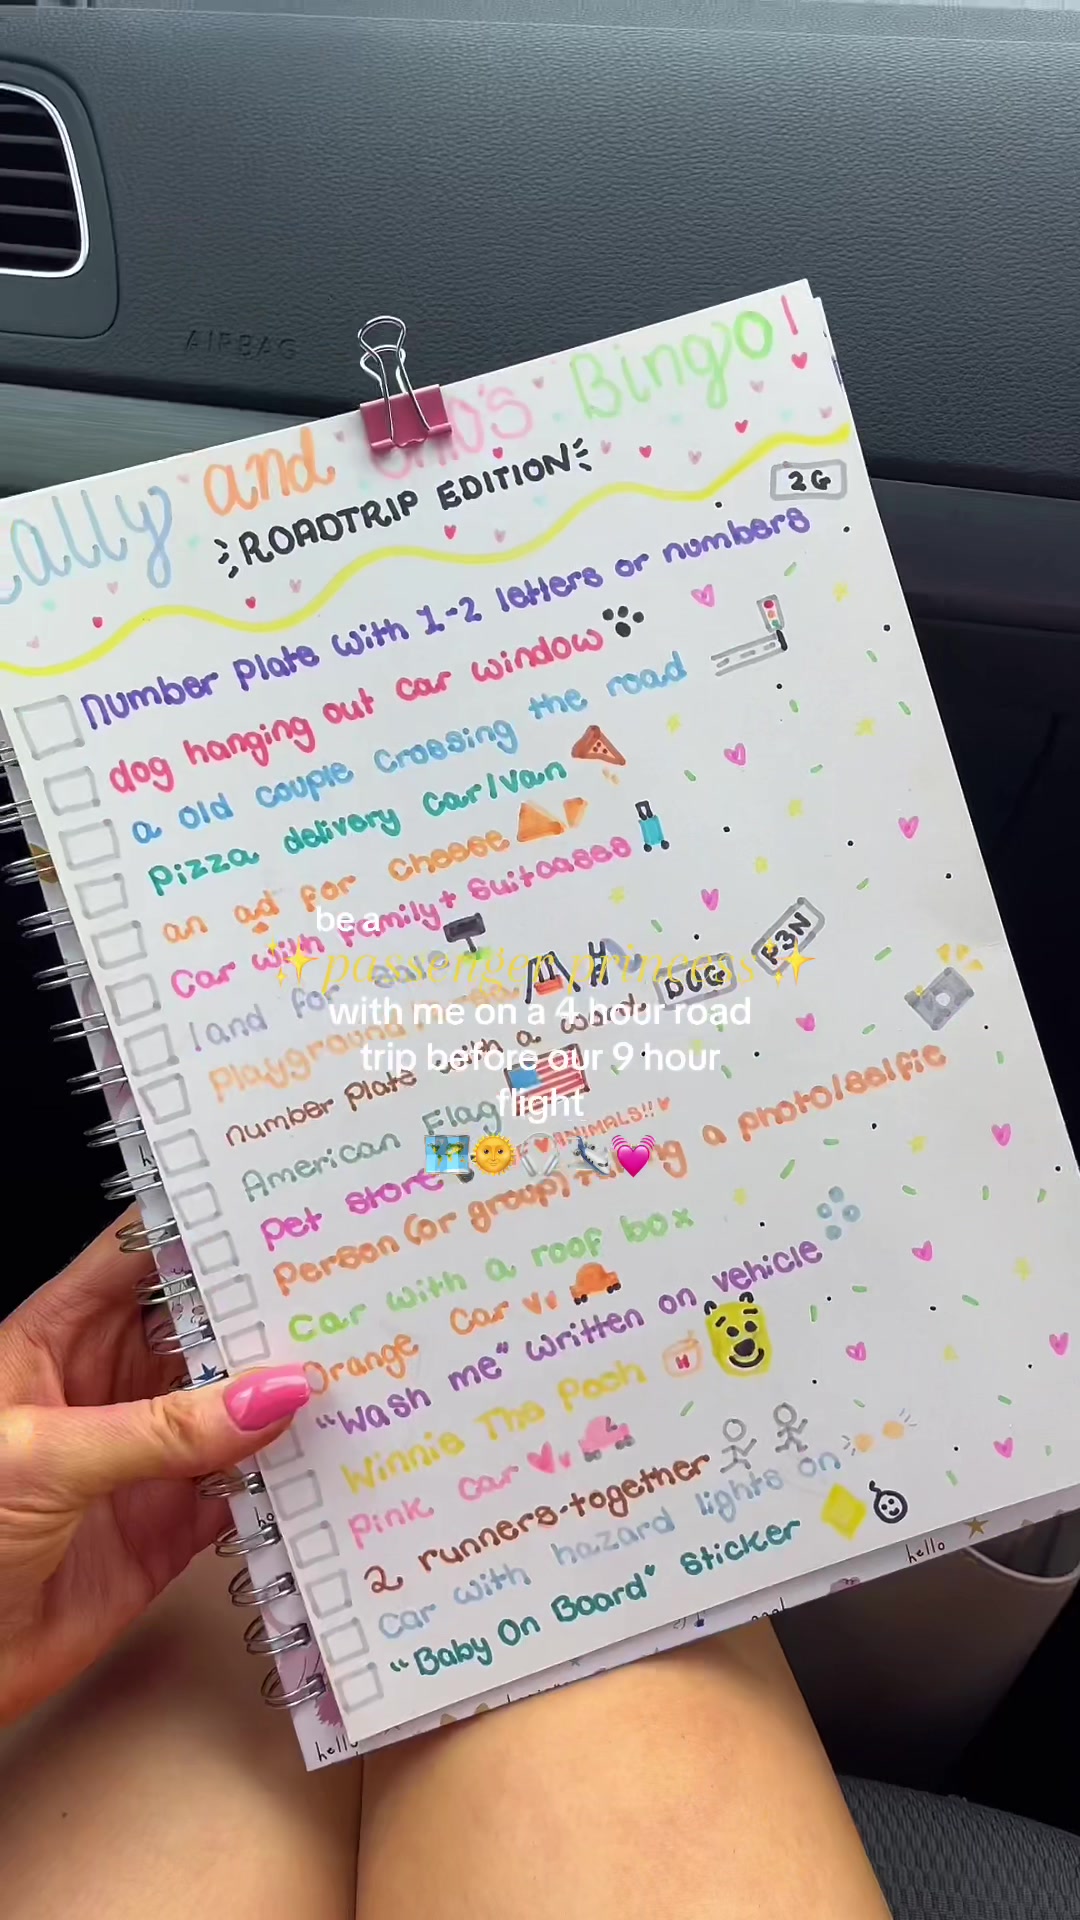 AIRBAG
ally and 's Bingo!
ROADTRIP EDITION
2G
number plate with 1-2 letters or numbers
dog hanging out car window
a old couple crossing the road
pizza delivery car/van
an ad for cheese
car with family + suitcases
land for sale
playground area
number plate with a word DUG P3N
American Flag
pet store ANIMALS!!
person (or group) taking a photo/selfie
car with a roof box
orange car
"wash me" written on vehicle
Winnie The Pooh
H
pink car
2 runners-together
car with hazard lights on
"Baby On Board" sticker
be a
✨passenger princess✨
with me on a 4 hour road
trip before our 9 hour
flight
🗺️🌞🎧✈️💓
hello
hello